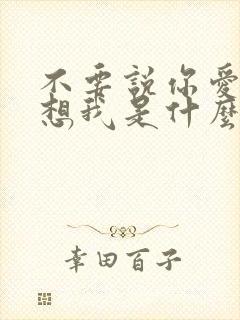 不要說你愛
想我是什麼
幸田百子